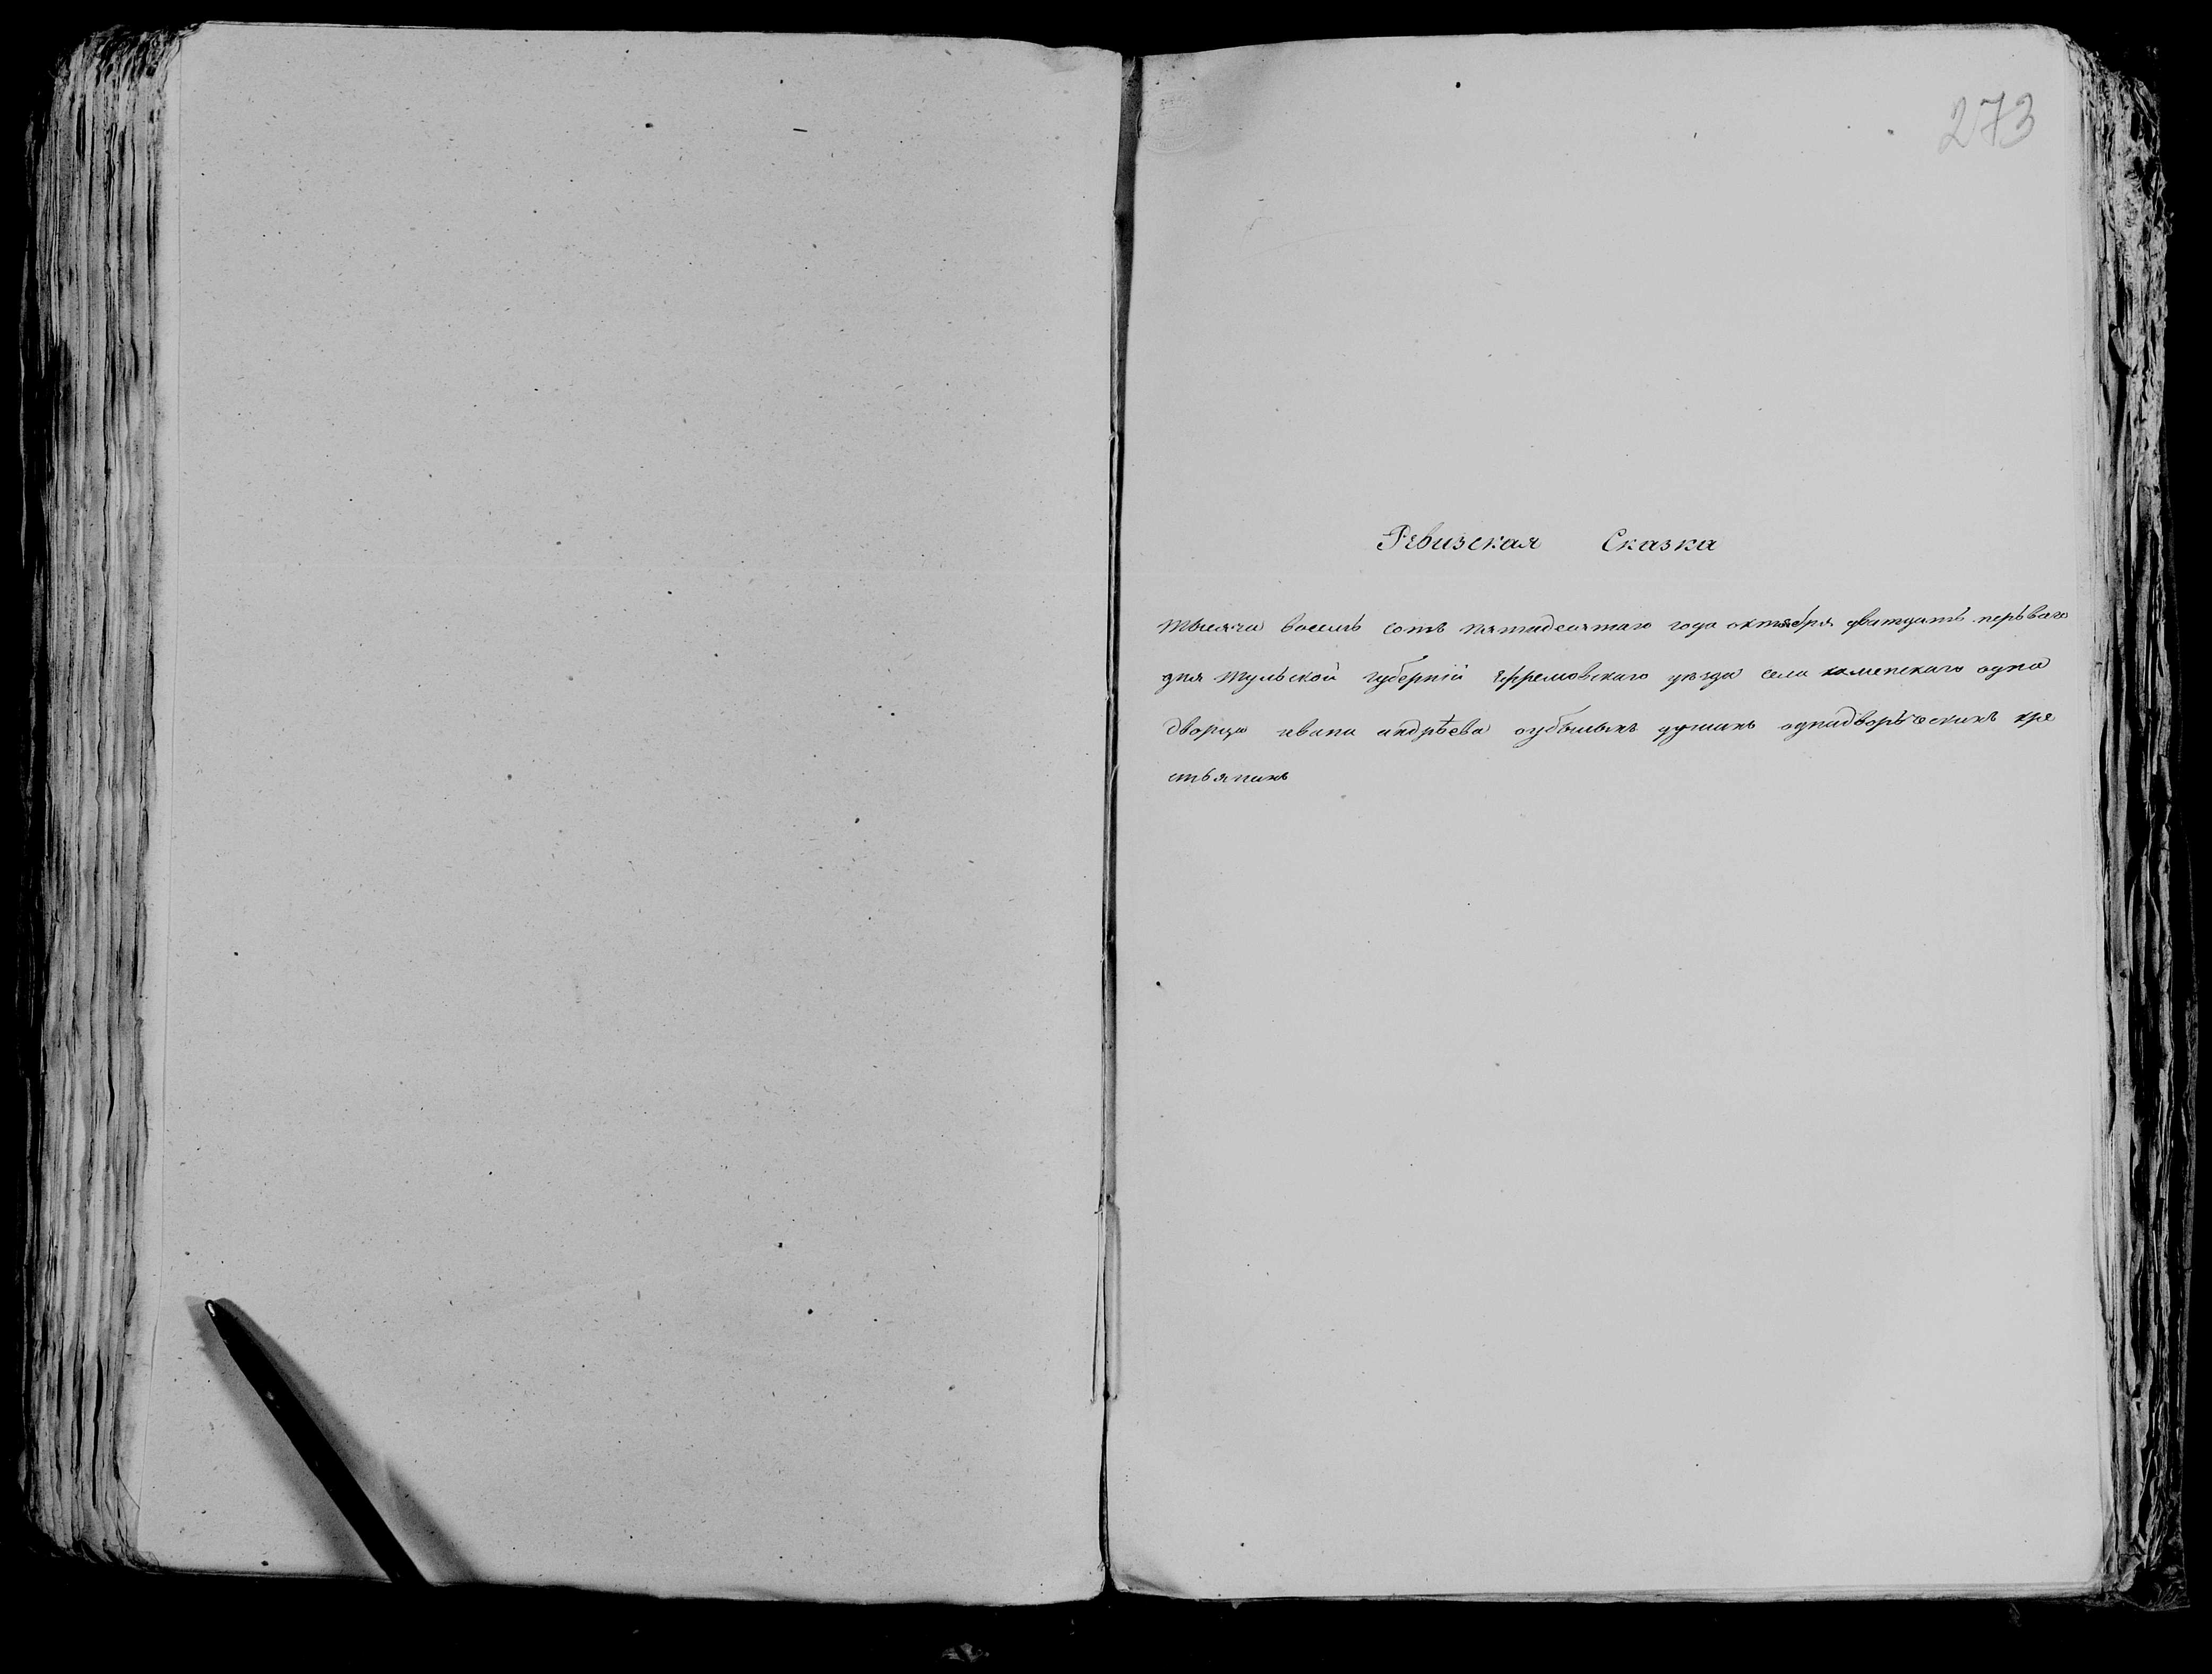 273
Ревизская Сказка
тысяча восемь сотъ пятидесятаго года октября дватдать перьваго
дня Тульской губерніи Ефремовскаго уезда села каменскаго одно
дворца ивана андрѣева душахъ однадворческихъ кре
стьянихъ